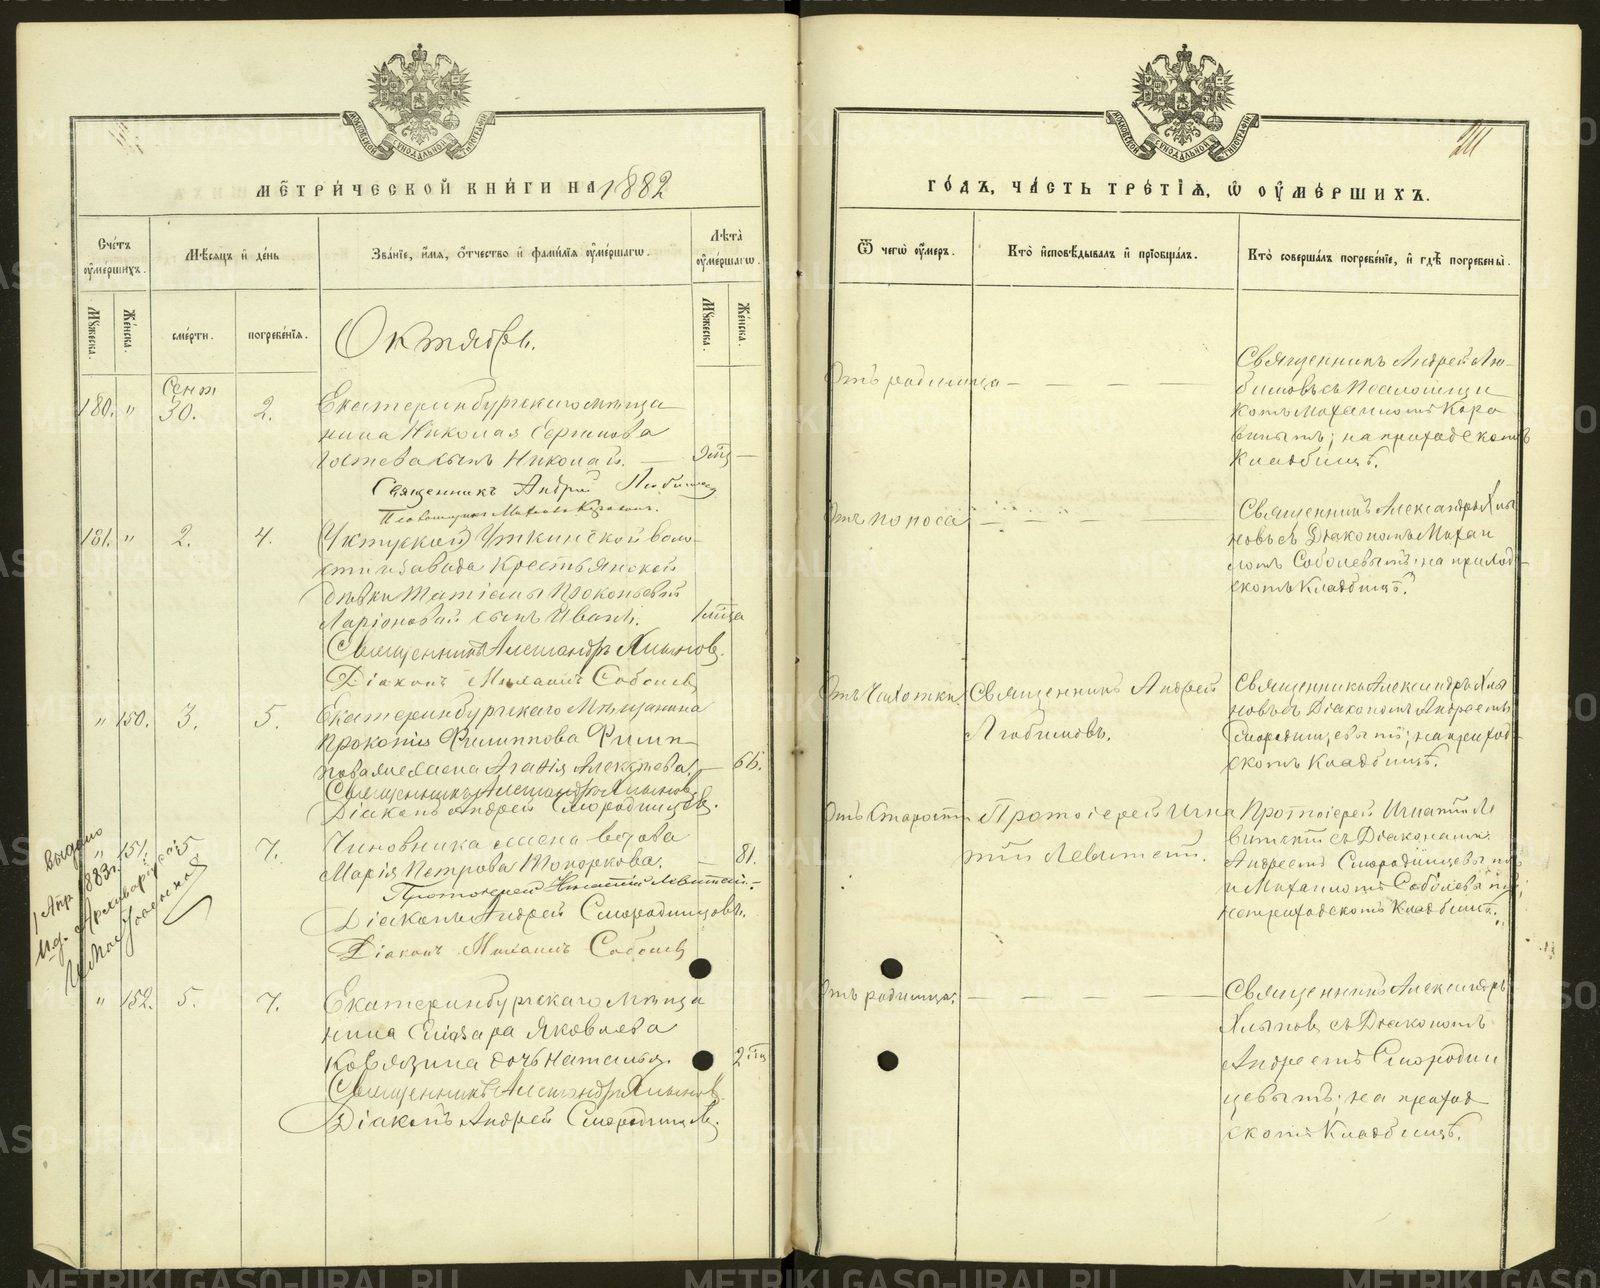 МЕТРИЧЕСКОЙ КНИГИ НА 1882
Счетъ оумершихъ.
Мѣсяцъ и день
Званіе, имя, отчество и фамилія оумершагѡ.
Лѣта оумершагѡ.
Мꙋжеска.
Женска.
смерти.
погребенія.
Мꙋжеска.
Женска.
Октябрь.
Сент
180. " 30. 2. Екатеринбургскаго мѣща
нина Николая
сынъ Николай. — 9 мц —
Священникъ Андрей Любимовъ
Псаломщикъ Михаилъ
181. " 2. 4. (Уктуской) Уткинской воло-
сти и завода крестьянской
дѣвки Татіаны Прокопьевой
Ларіоновой сынъ Иванъ. 1 мца
Священникъ Александръ Хлыновъ.
Діаконъ Михаилъ Соболевъ
" 150. 3. 5. Екатеринбургскаго мѣщанина
Прокопія Филиппова Филип
пова жена Агафія Алексѣева. — 66.
Священникъ Александръ Хлыновъ
Діаконъ Андрей Смородинцевъ.
" 151. 5. 7. Чиновника жена вдова
Марія Петрова Топоркова. — 81.
Протоіерей Игнатій Левитскій.
Діаконъ Андрей Смородинцовъ.
Діаконъ Михаилъ Соболевъ
выдано
1 Апр. 1883 г.
" 152. 5. 7. Екатеринбургскаго мѣща
нина Елизара Яковлева
Ковязина дочь Наталья. 2 мц
Священникъ Александръ Хлыновъ.
Діаконъ Андрей Смородинцевъ.
211
ГОДЪ, ЧАСТЬ ТРЕТІЯ, Ѡ ОУМЕРШИХЪ.
Ѿ чегѡ оумеръ.
Кто исповѣдывалъ и пріобщалъ.
Кто совершалъ погребеніе, и гдѣ погребены.
Отъ родимца — — — —
Священникъ Андрей Лю-
бимовъ съ Псаломщи
комъ Михаиломъ Кора
винымъ; на приходскомъ
кладбищѣ.
Отъ поноса — — — —
Священникъ Александръ Хлы
новъ съ Діакономъ Михаи
ломъ Соболевымъ; на приход-
скомъ кладбищѣ.
Отъ чахотки
Священникъ Андрей
Любимовъ.
Священникъ Александръ Хлы
новъ съ Діакономъ Андреемъ
Смородинцевымъ; на приход-
скомъ кладбищѣ.
Отъ старости
Протоіерей Игна
тій Левитскій.
Протоіерей Игнатій Ле
витскій съ Діаконами
Андреемъ Смородинцевымъ
и Михаиломъ Соболевымъ;
на приходскомъ кладбищѣ.
Отъ родимца. — — — —
Священникъ Александръ
Хлыновъ съ Діакономъ
Андреемъ Смородин
цевымъ; на приход
скомъ кладбищѣ.
METRIKI.GASO-URAL.RU